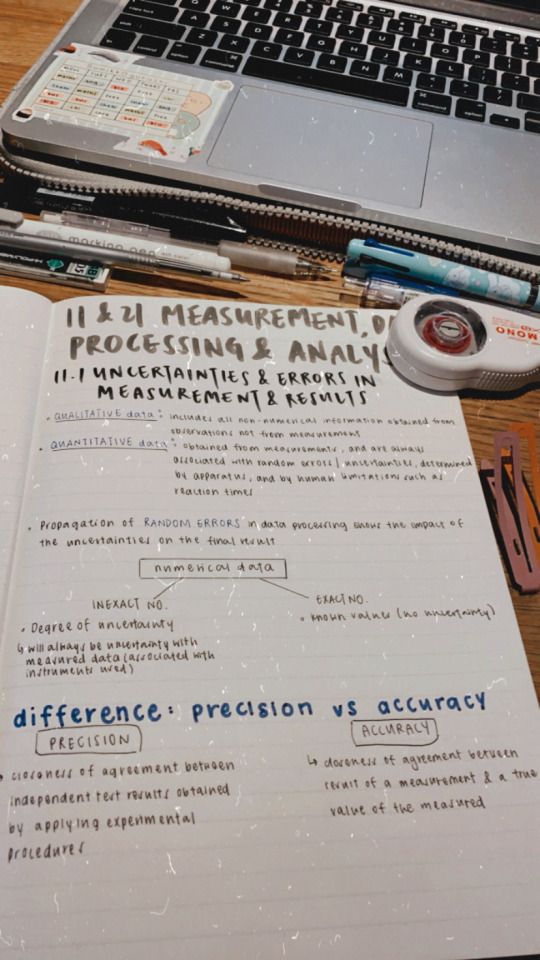 control
option
command
command
option
marking pen
MONO
11 & 21 MEASUREMENT, D
PROCESSING & ANALYS
11.1 UNCERTAINTIES & ERRORS IN
MEASUREMENT & RESULTS
• QUALITATIVE data: includes all non-numerical information obtained from
observations not from measurement
• QUANTITATIVE data: obtained from measurements, and are always
associated with random errors / uncertainties, determined
by apparatus, and by human limitations such as
reaction times
• Propagation of RANDOM ERRORS in data processing shows the impact of
the uncertainties on the final result
numerical data
INEXACT NO.
EXACT NO.
• Degree of uncertainty
• known values (no uncertainty)
↳ will always be uncertainty with
measured data (associated with
instruments used)
difference: precision vs accuracy
PRECISION
ACCURACY
closeness of agreement between
independent test results obtained
by applying expenmental
procedures
↳ closeness of agreement between
result of a measurement & a true
value of the measured